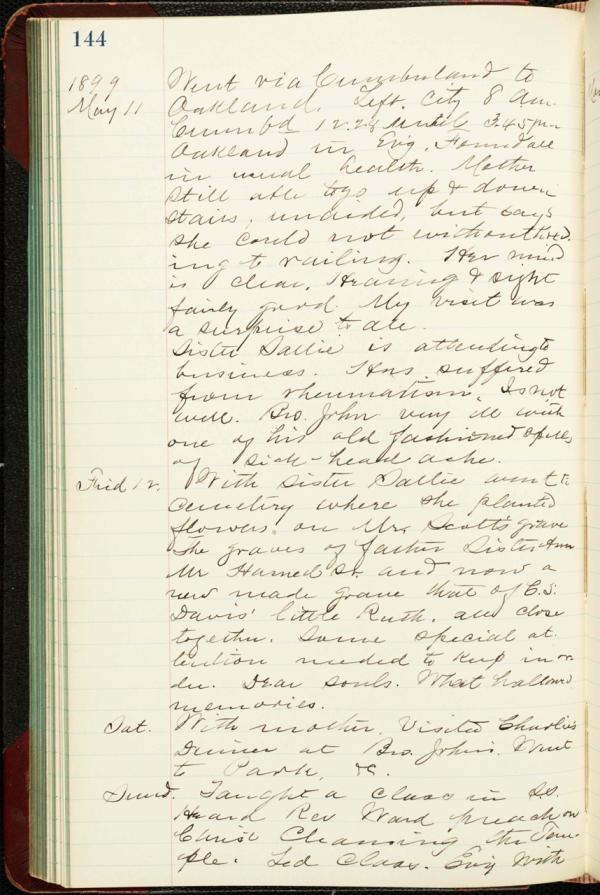 144
1899 Went via Cumberland to
May 11 Oakland. Left city 8 am.
Cumbd 12.28 until 3.45 pm
Oakland in Evg. Found all
in usual health. Mother
still able to go up & down
stairs, unaided, but says
she could not without hold-
ing to railing. Her mind
is clear, Hearing & sight
fairly good. My visit was
a surprise to all.
Sister Sallie is attending to
business. Has suffered
from rheumatism. Is not
well. Bro. John very ill with
one of his old fashioned spells
of sick-head ache.
Frid 12. With Sister Sallie went to
cemetery where she planted
flowers on Mr. Scott's grave
The graves of father Sister Ann
Mr Hamed Sr. and now a
new made grave that of C.S.
Davis' little Ruth, all close
together. Some special at
tention needed to keep in or
der. Dear souls. What hallowed
memories.
Sat. With mother, Visited Charlie's
Dinner at Bro. John's. Went
to Park, &c.
Sund. Taught a class in S.S.
Heard Rev Ward preach on
Christ Cleansing the Tem-
ple. Led Class. Evg with